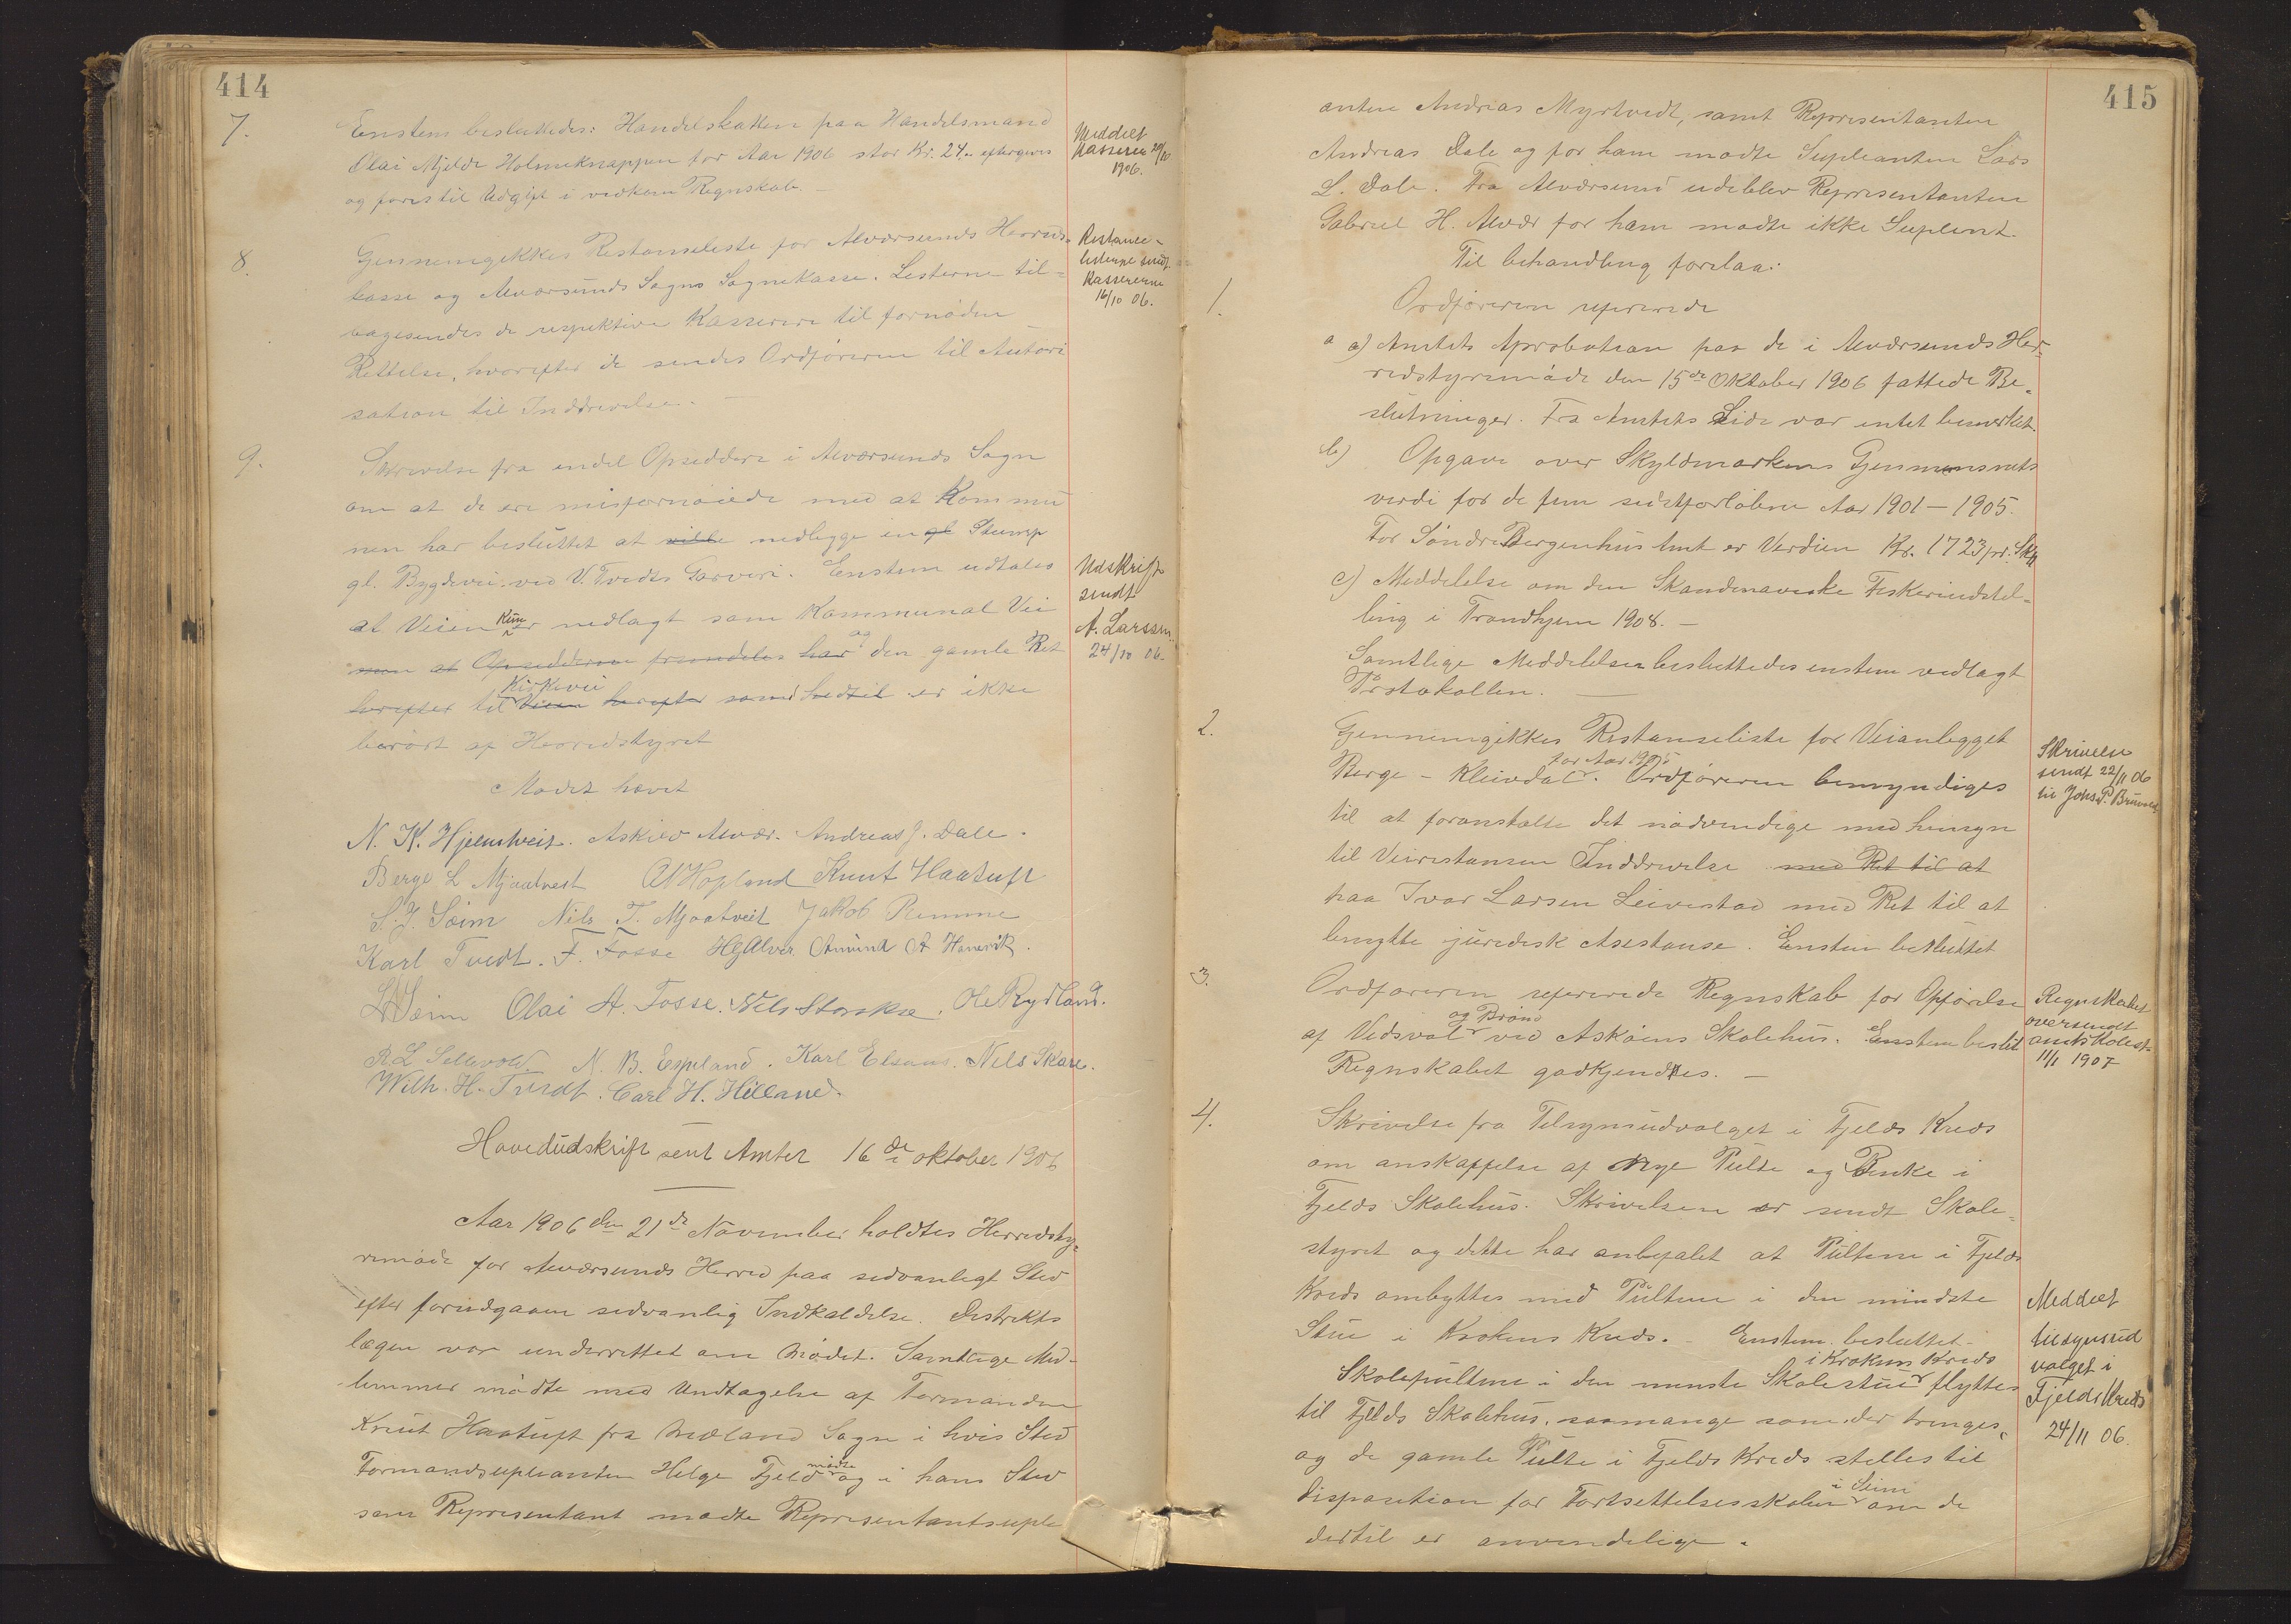 414
7.
Enstem besluttedes: Handelskatten paa Handelsmand
Olai Mjelde Holmeknappen for Aar 1906 stor Kr. 24.- eftergives
og føres til Udgift i vedkom Regnskab. -
Meddelt
Kasseren 20/10
1906.
8.
Gjennemgikkes Restanseliste for Alversunds Herreds-
kasse og Alversunds Sogns Sognekasse. Listerne til-
bagesendes de respektive Kasserere til fornøden
Rettelse, hvorefter de sendes Ordføreren til Autori
sation til Inddrivelse. -
Restance-
listerne sendt
Kassererne
16/10 06.
9.
Skrivelse fra endel Opsiddere i Alversunds Sogn
om at de ere misfornøiede med at Kommu
nen har besluttet at ville nedlægge en gl Stump
gl. Bygdevei ved V. Tvedts Garveri. Enstem udtales
at Veien kun er nedlagt som Kommunal Vei
men at Opsidderne fremdeles har og den gamle Ret
herefter til Kirkevei Veien herefter som hedtil er ikke
berørt af Herredstyret
Udskrift
sendt
A. Larssen
24/10 06.
Mødet hævet
N. K. Hjelmtveit. Askild Alver. Andreas J. Dale.
Berge L Mjaatveit A Hopland Knut Haatuft
S. J. Seim Nils T. Mjaatveit Jakob Remme
Karl Tvedt. F. Fosse H Alver Amund A Hanevik.
Seim Olai A. Fosse. Nels Storske. Ole Rydland.
R L Sellevold. N. B. Espeland. Karl Elsaas. Nels Skare.
Wilh. H. Tvedt. Carl H. Hilland.
Hovedudskrift sent Amtet 16de oktober 1906
Aar 1906 den 21de November holdtes Herredsty-
remøde for Alversunds Herred paa sedvanligt Sted
efter forudgaaen sedvanlig Indkaldelse. Distrikts
lægen var underrettet om Mødet. Samtlige Med-
lemmer mødte med Undtagelse af Formanden
Knut Haatuft fra Meland Sogn i hvis Sted
Formandsupleanten Helge Fjeld mødte og i hans Sted
som Representant mødte Representantsuple
415
anten Andreas Myrtvedt, samt Representanten
Andreas Dale og for ham mødte Supleanten Lars
L. Dale. Fra Alversund udeblev Representanten
Gabriel H. Alver for ham mødte ikke Suplent.
Til behandling forelaa:
1.
Ordføreren refererede
a a) Amtets Aprobation paa de i Alversunds Her-
redstyremøde den 15de Oktober 1906 fattede Be-
slutninger. Fra Amtets Side var intet bemerket.
b) Opgave over Skyldmarkens Gjennemsnits
verdi for de fem sidstforløbne Aar 1901 - 1905.
For Søndre Bergenhus Amt er Verdien Kr. 1723 pr. Skm
c) Meddelelse om den Skandinaviske Fiskeriudstil-
ling i Trondhjem 1908. -
Samtlige Meddelelser besluttedes enstem vedlagt
Protokollen. -
2.
Gjennemgikkes Restanseliste for Veianlegget
Berge - Kleivdal for Aar 1905. Ordføreren bemyndiges
til at foranstalte det nødvendige med hensyn
til Veirestansen Inddrivelse med Ret til at
paa Ivar Larsen Leivestad med Ret til at
benytte juridisk Asistanse. Enstem besluttet
Skrivelse
sendt 22/11 06
til Johs. P.
3.
Ordføreren refererede Regnskab for Opførelse
af Vedsval og Brønd ved Askøens Skolehus. Enstem beslut
Regnskabet godkjendtes. -
Regnskabet
oversendt
amtskolest.
11/1 1907
4.
Skrivelse fra Tilsynsudvalget i Fjelds Kreds
om anskaffelse af Nye Pulte og Benke i
Fjelds Skolehus. Skrivelsen er sendt Skole-
styret og dette har anbefalet at Pultene i Fjelds
Kreds ombyttes med Pultene i den mindste
Stue i Krokens Kreds. - Enstem besluttet -
Skolepultene i den minste Skolestue i Krokens Kreds flyttes
til Fjelds Skolehus, saamange som der trenges,
og de gamle Pulte i Fjelds Kreds stilles til
Disposition for Fortsettelsesskolen i Seim om de
dertil er anvendelige.
Meddelt
tilsynsud
valget i
Fjelds Kreds
24/11 06.